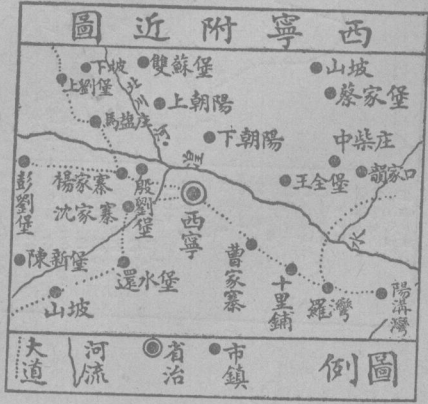 西寧附近圖
下坡
雙蘇堡
山坡
上劉堡
北川
河
蔡家堡
上朝陽
馬塩庄
下朝陽
中柴庄
湟
彭劉堡
楊家寨
殷劉堡
王全堡
韻家口
沈家寨
西寧
水
陳新堡
還水堡
曹家寨
十里鋪
羅灣
陽溝灣
山坡
圖例
市鎮
省治
河流
大道